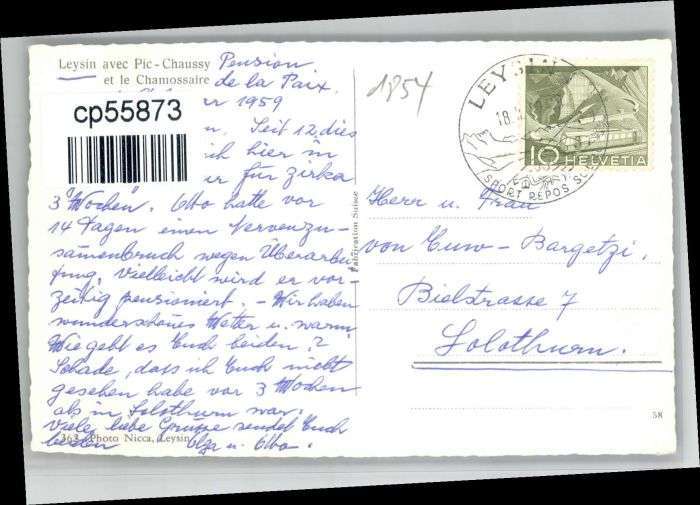 Leysin avec Pic-Chaussy
et le Chamossaire
Pension
de la Paix.
cp55873
1959
Seit 12. dies
ich hier in
für zirka
3 Wochen. Otto hatte vor
14 Tagen einen Nervenzu-
samenbruch wegen Überarbei-
tung. Vielleicht wird er vor-
zeitig pensioniert. – Wir haben
wunderschönes Wetter u. warm.
Wie geht es Euch beiden?
Schade, dass ich Euch nicht
gesehen habe vor 3 Wochen
als in Solothurn war.
Viele liebe Grüsse sendet Euch
beiden Olga u. Otto.
363 Photo Nicca, Leysin
Fabrication Suisse
1854
LEYSIN
18.
SPORT REPOS
10 HELVETIA
Herr u. Frau
von Euw-Bargetzi,
Bielstrasse 7
Solothurn.
58